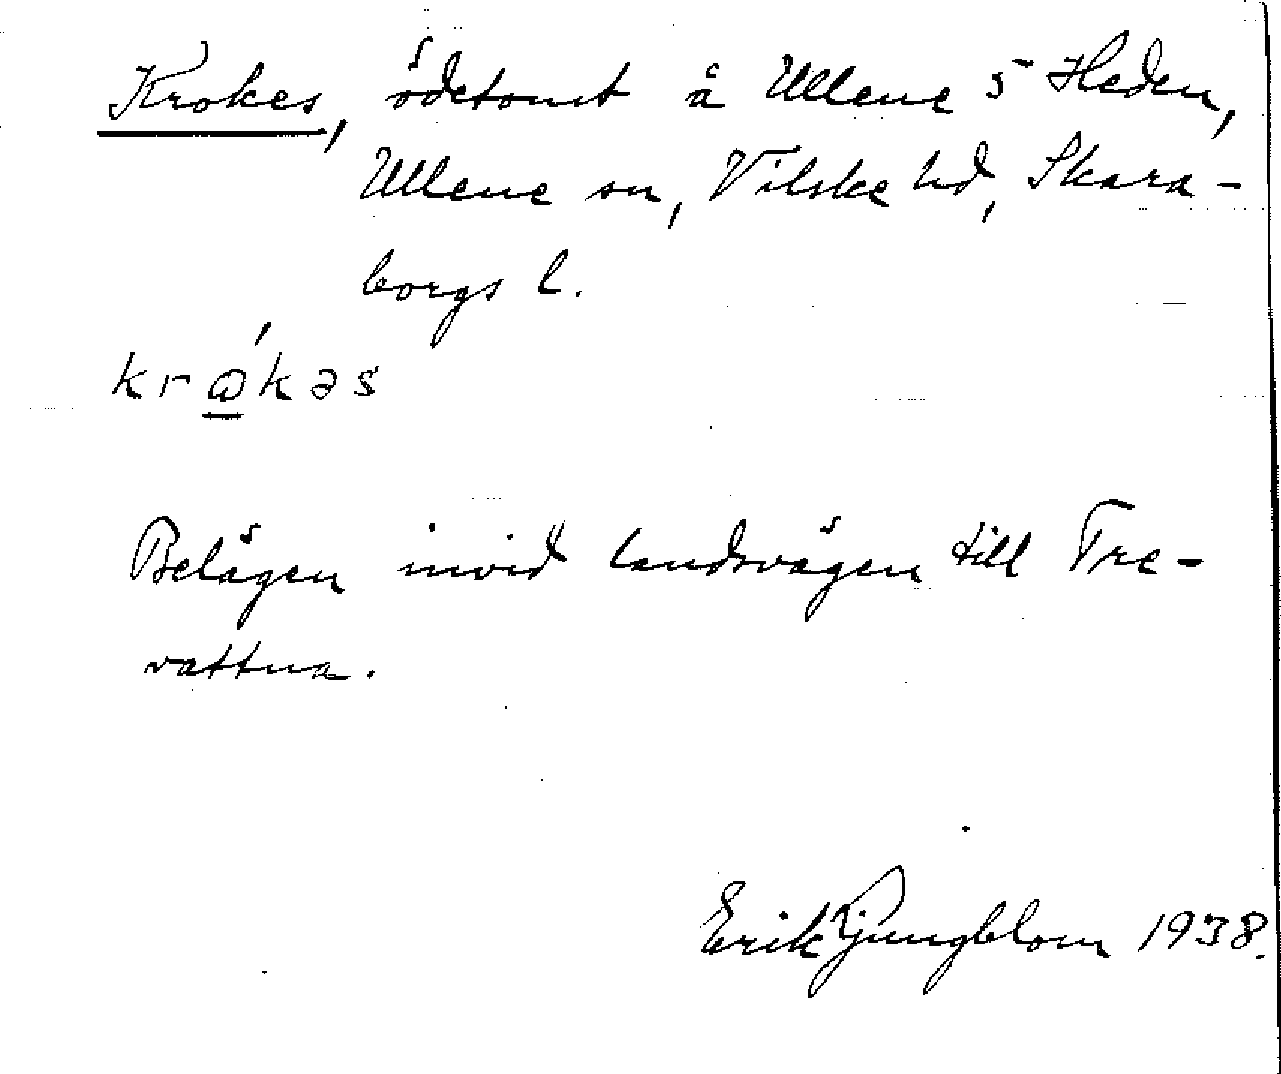 Krokes, ödetomt å Ullene 5 Heden,
Ullene sn, Vilske hd, Skara-
borgs l.
krώkəs
Belägen invid landsvägen till Tre-
vattna.
Erik Ljungblom 1938.